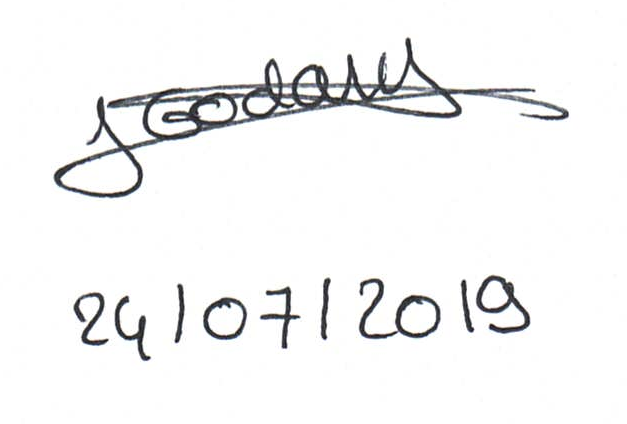 J Godary
24/07/2019